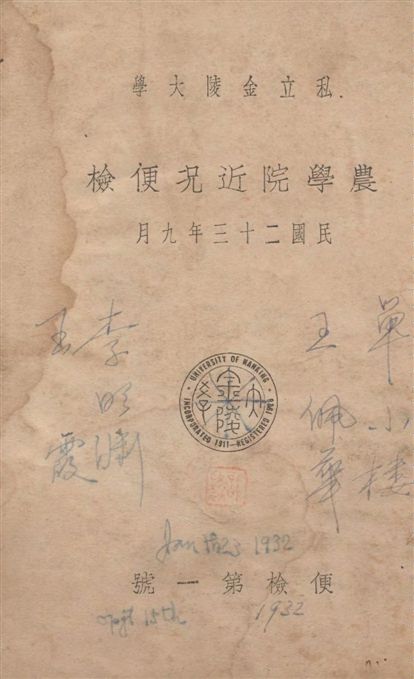 私立金陵大學
農學院近況便檢
民國二十三年九月
單小樓
王佩華
李明
王霞
UNIVERSITY OF NANKING
INCORPORATED 1911—REGISTERED 1928
金陵大學
1932
便檢第一號
15th
1932